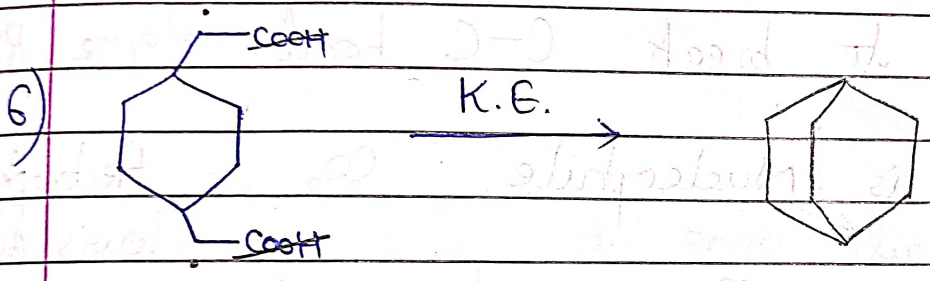 COOH
6)
K.E.
COOH